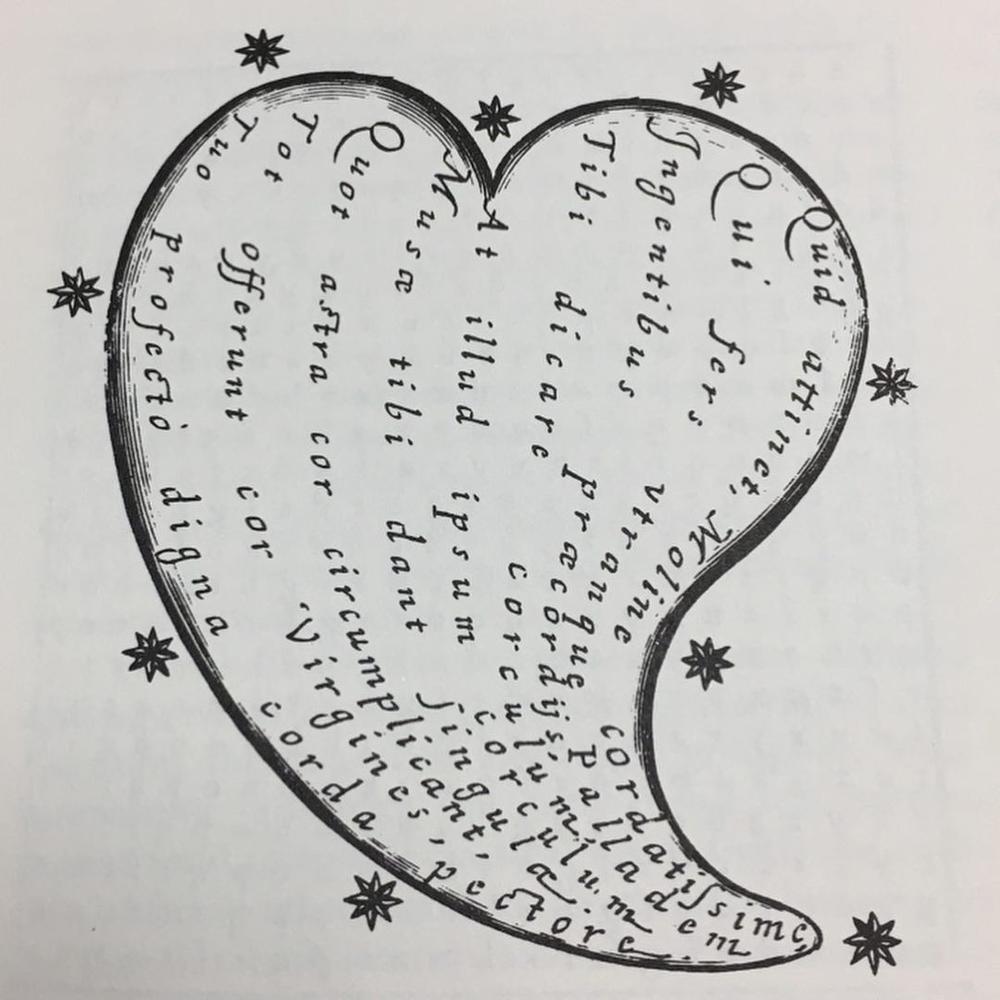 Quid attinet, Moline cordatiſsime,
Qui fers vtranque Palladem
Ingentibus præcordijs,
Tibi dicare corculum?
At illud ipsum corculum
Musæ tibi dant ſingulæ,
Quot aſtra cor circumplicant,
Tot offerunt cor Virgines,
Tuo profectò digna corda pectore